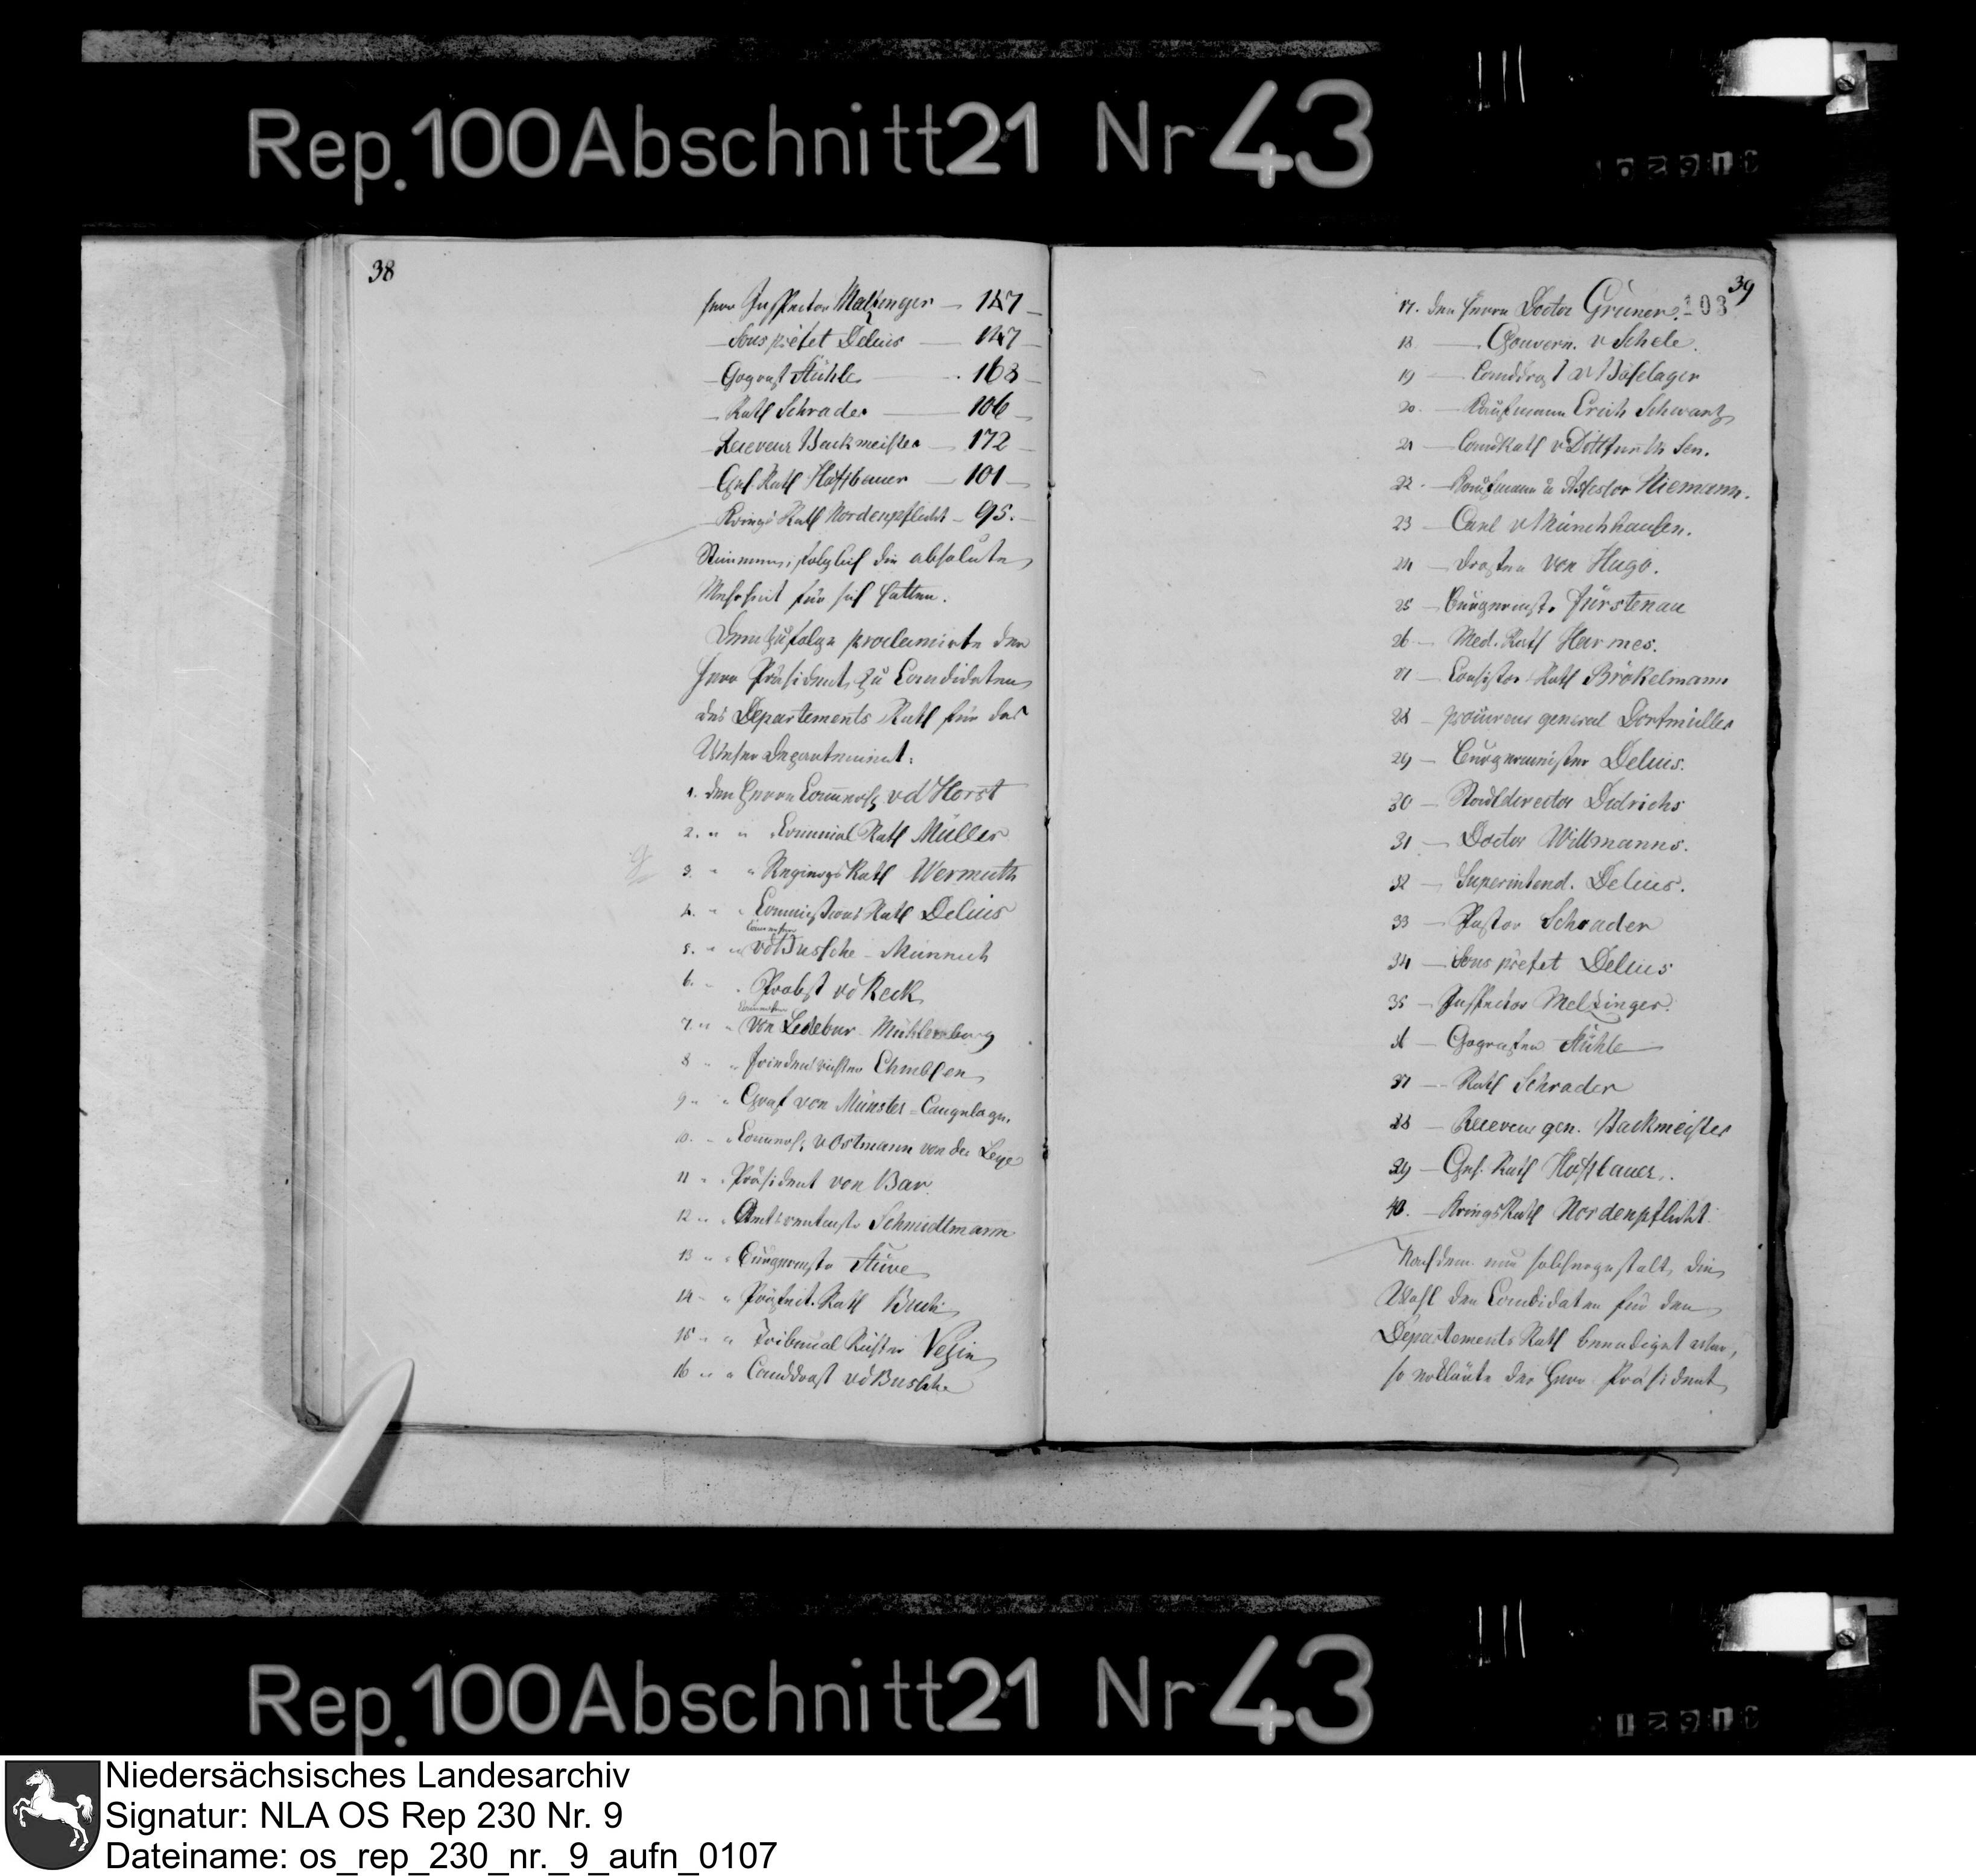 Rep. 100 Abschnitt 21 Nr 43
38
Herr Inspector Metzinger — 147
— Sous préfet Delius — 147
— Gograf Stühle — 163
— Rath Schrader — 106
— Receveur Backmeister — 172
— Geh. Rath Hoffbauer — 101
— Kriegs Rath Nordenpflicht — 95.
Stimmen, folglich die absolute
Mehrheit für sich hatten.
Dem zufolge proclamirte der
Herr Präsident zu Candidaten
des Departements Rath für das
Weser Departement:
1. den Herrn v d Horst
2. " " Criminal Rath Müller
3. " " Regierungs Rath Wermuth
4. " " Commissions Rath Delius
5. " " v d Bussche-Münnich
6. " " Probst v d Reck
7. " " von Ledebur-Mühlenburg
8. " " Friedensrichter Ehmbsen
9. " " Graf von Münster-Langelage.
10. " " v Ostmann von der Leye
11. " " Präsident von Bar
12. " " Amtsrentmstr Schmidtmann
13. " " Bürgermstr Stüve
14. " " Präfect. Rath Buch
15. " " Tribunal Richter Vezin
16. " " Landdrost v d Bussche
39
103
17. den Herrn Doctor Gruner.
18 — Gouvern. v Schele.
19 — Landdrost v Böselager
20. — Kaufmann Erich Schwartz
21 — LandRath v Dittfurth Sen.
22. — Kaufmann u Assessor Niemann.
23 — Carl v Münchhausen.
24 — Drosten von Hugo.
25 — Bürgermstr Fürstenau
26 — Med. Rath Harmes.
27 — Consistor. Rath Brökelmann
28 — procureur general Dortmüller
29 — Bürgermeister Delius.
30 — Stadtdirector Didrichs
31 — Doctor Willmanns.
32 — Superintend. Delius.
33 — Pastor Schrader
34 — Sous préfet Delius
35 — Inspector Metzinger.
36 — Gografen Stühle
37 — Rath Schrader
38 — Receveur gen. Backmeister
39 — Geh. Rath Hoffbauer.
40. — KriegsRath Nordenpflicht.
Nachdem nun solchergestalt die
Wahl der Candidaten für den
Departements Rath beendiget war,
so erklärte der Herr Präsident
Rep. 100 Abschnitt 21 Nr 43
Niedersächsisches Landesarchiv
Signatur: NLA OS Rep 230 Nr. 9
Dateiname: os_rep_230_nr._9_aufn_0107